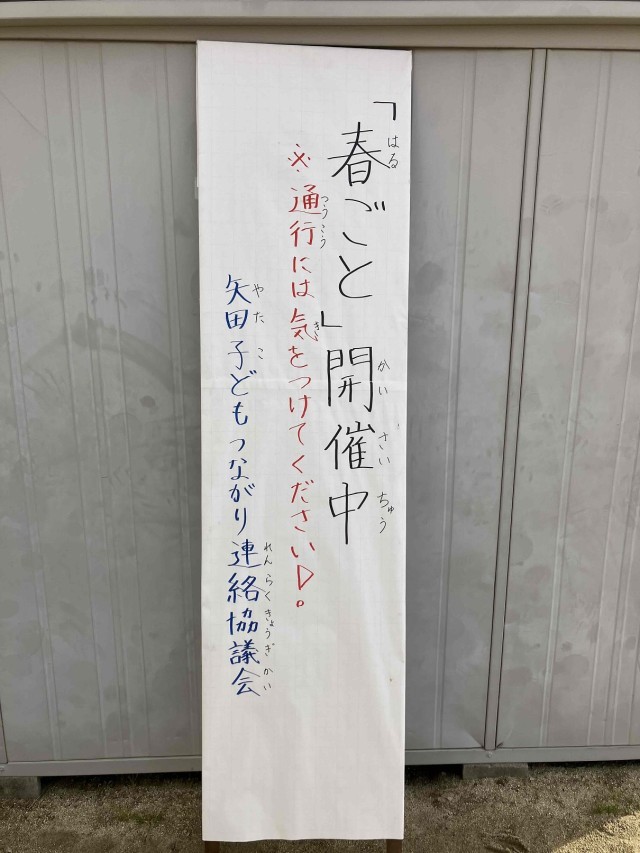 はる かいさいちゅう
「春ごと」開催中
つうこう き
※通行には気をつけてください！
やたこ れんらくきょうぎかい
矢田子どもつながり連絡協議会